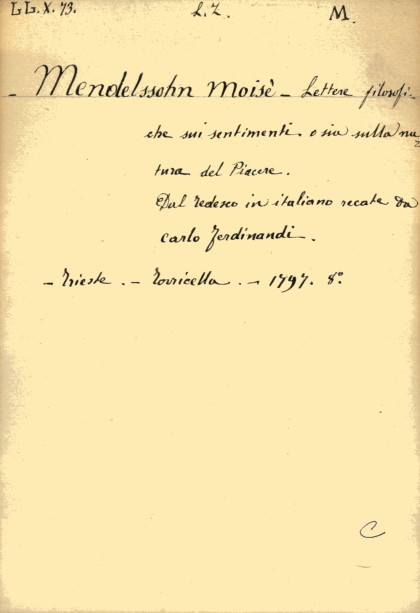 LL.X.73. L.Z. M.
- Mendelssohn Moisè - Lettere filosofi-
che sui sentimenti o sia sulla na
tura del Piacere.
Dal tedesco in italiano recate da
Carlo Ferdinandi.
- Trieste. - Torricella. - 1797. 8º.
C